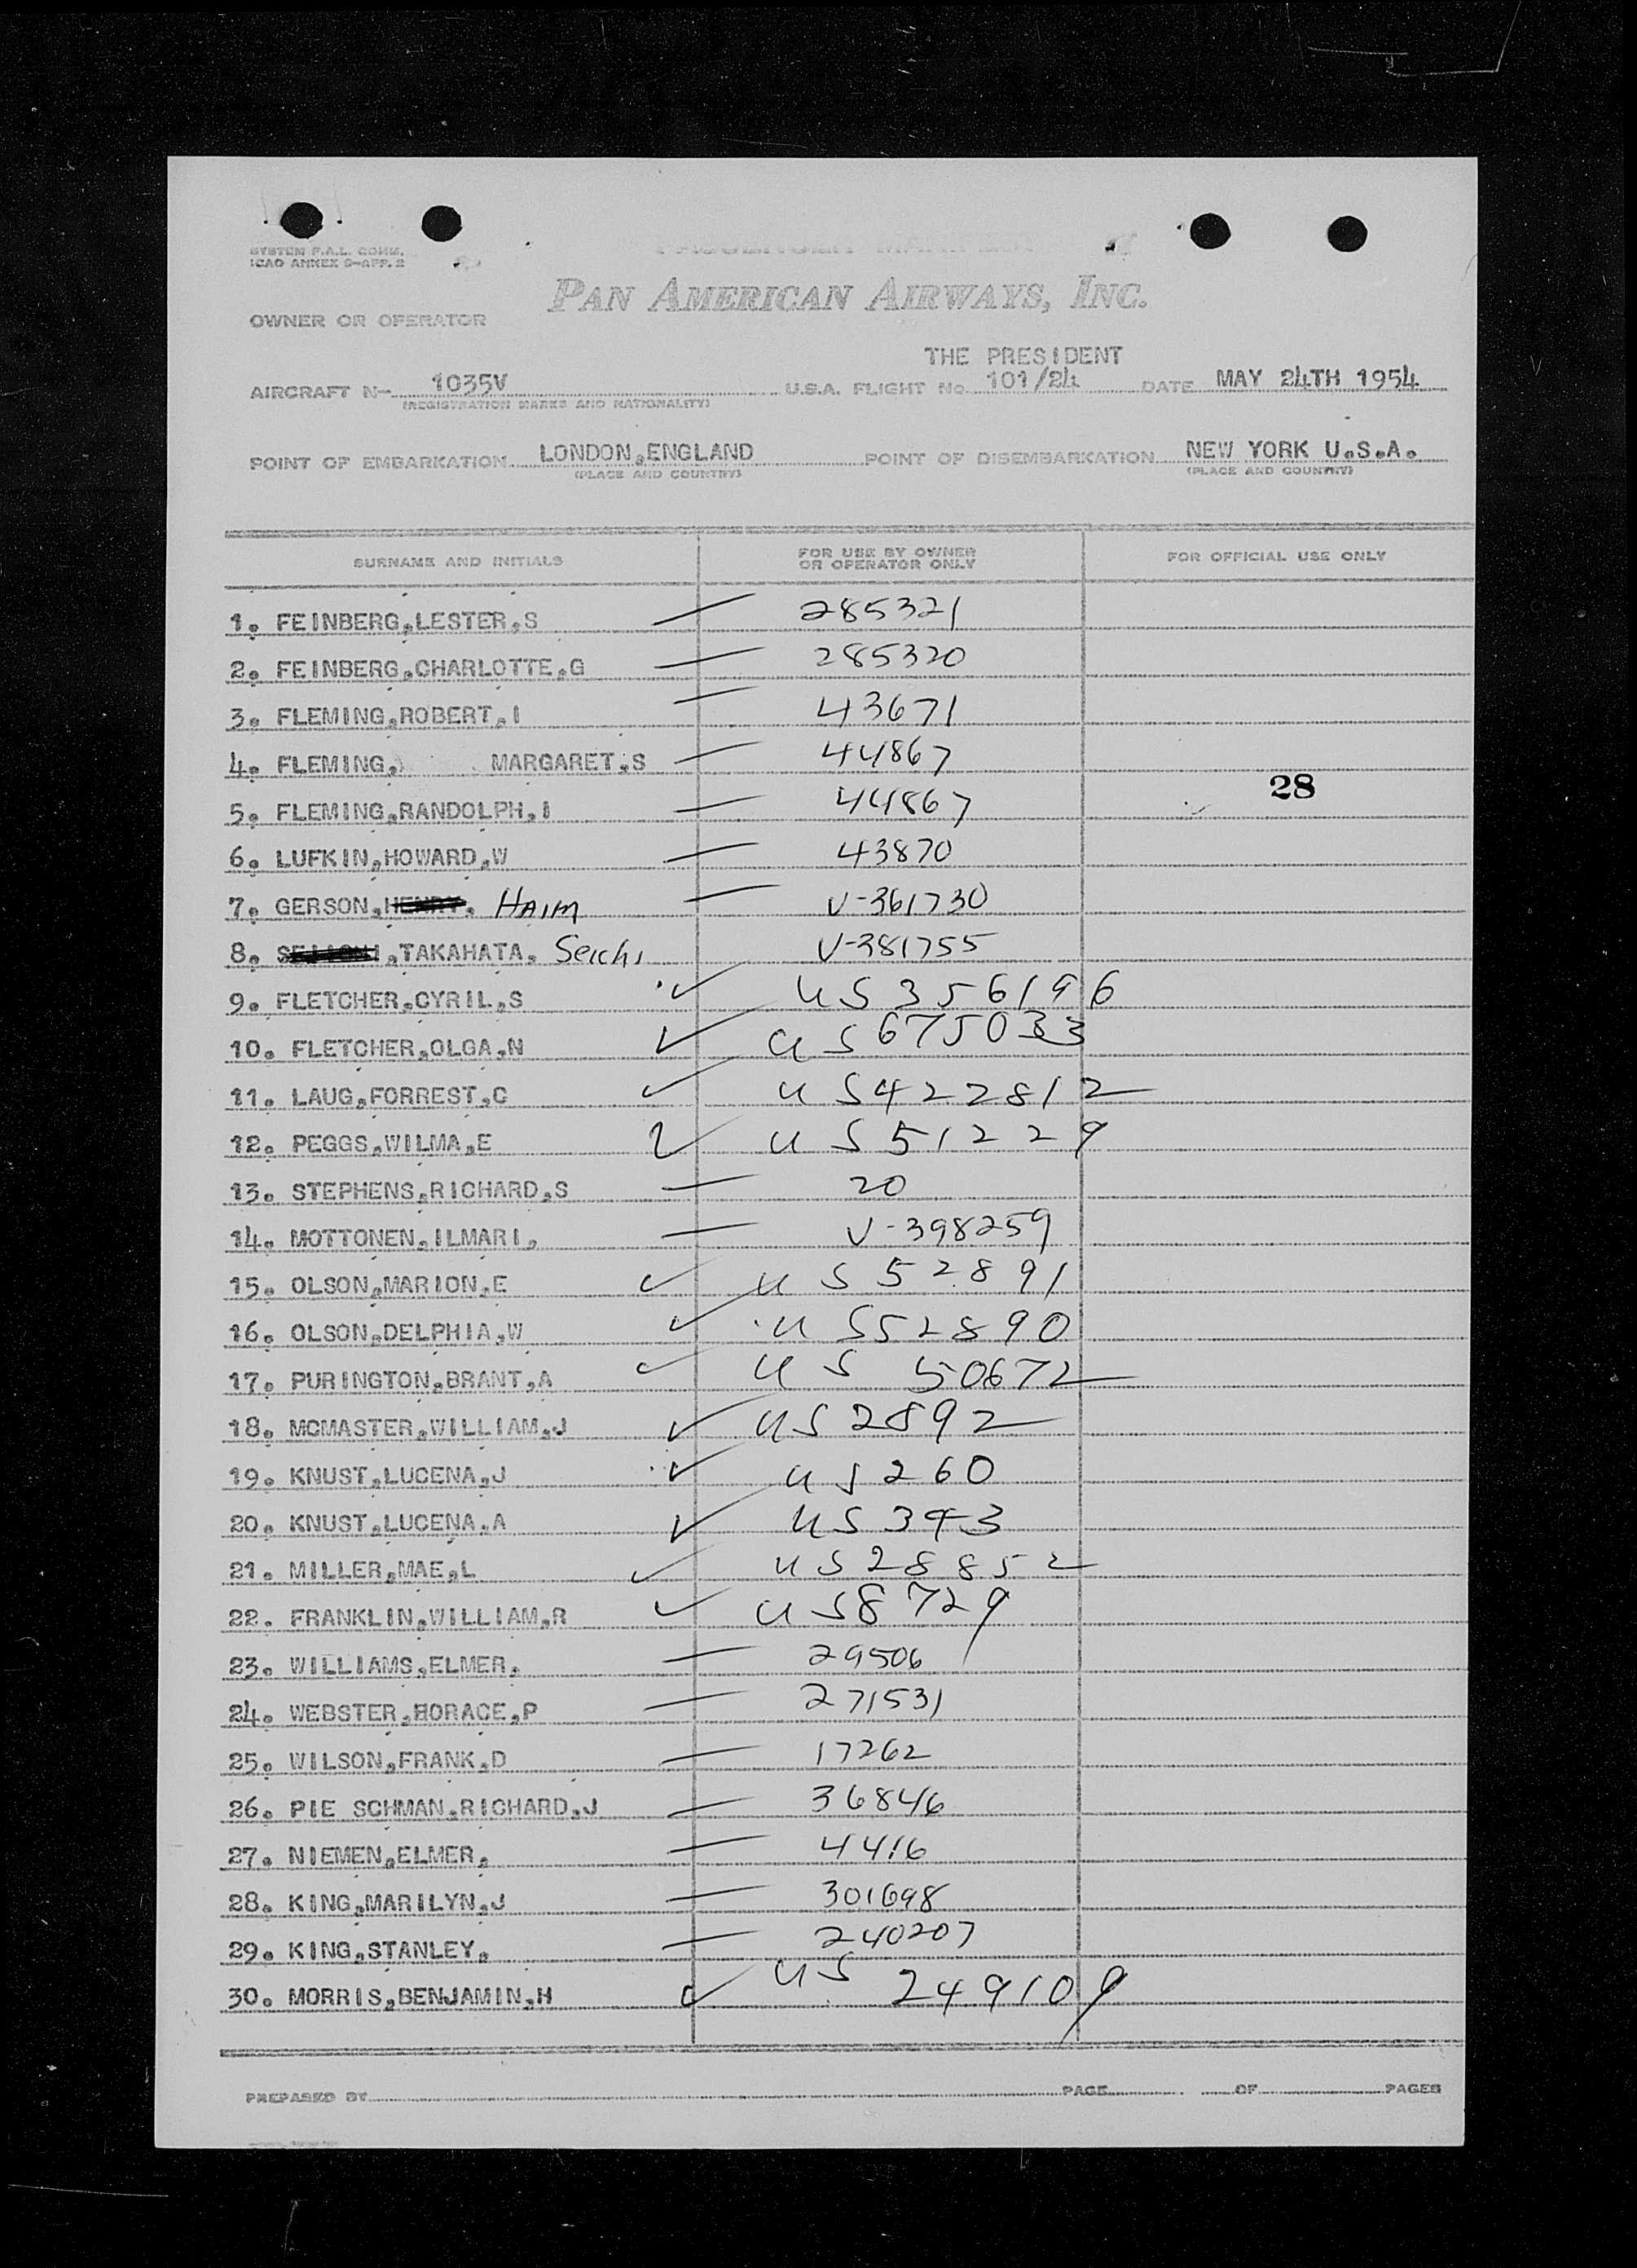 SYSTEM F.A.L. COMM.
ICAO ANNEX 9-APP. 2
PAN AMERICAN AIRWAYS, INC.
OWNER OR OPERATOR
THE PRESIDENT
AIRCRAFT N- 1035V U.S.A. FLIGHT No. 101/24 DATE MAY 24TH 1954
(REGISTRATION MARKS AND NATIONALITY)
POINT OF EMBARKATION LONDON,ENGLAND POINT OF DISEMBARKATION NEW YORK U.S.A.
(PLACE AND COUNTRY) (PLACE AND COUNTRY)
SURNAME AND INITIALS FOR USE BY OWNER OR OPERATOR ONLY FOR OFFICIAL USE ONLY
1. FEINBERG,LESTER,S — 285321
2. FEINBERG,CHARLOTTE,G — 285320
3. FLEMING,ROBERT,I — 43671
4. FLEMING, MARGARET,S — 44867
28
5. FLEMING,RANDOLPH,I — 44867
6. LUFKIN,HOWARD,W — 43870
7. GERSON,HENRY. HAIM — V-361730
8. ,TAKAHATA. Seichi V-381755
9. FLETCHER,CYRIL,S ✓ US 356196
10. FLETCHER,OLGA,N ✓ US 675033
11. LAUG,FORREST,C ✓ US 422812
12. PEGGS,WILMA,E ✓ US 51229
13. STEPHENS,RICHARD,S — 20
14. MOTTONEN,ILMARI, — V-398259
15. OLSON,MARION,E ✓ US 52891
16. OLSON,DELPHIA,W ✓ US 52890
17. PURINGTON,BRANT,A ✓ US 50672
18. MCMASTER,WILLIAM,J ✓ US 2892
19. KNUST,LUCENA,J ✓ US 260
20. KNUST,LUCENA.A ✓ US 343
21. MILLER,MAE,L ✓ US 28852
22. FRANKLIN,WILLIAM,R ✓ US 8729
23. WILLIAMS,ELMER. — 29506
24. WEBSTER,HORACE,P — 271531
25. WILSON,FRANK,D — 17262
26. PIE SCHMAN,RICHARD,J — 36846
27. NIEMEN,ELMER, — 4416
28. KING,MARILYN,J — 301698
29. KING,STANLEY, — 240207
30. MORRIS,BENJAMIN,H ✓ US 249109
PREPARED BY PAGE OF PAGES